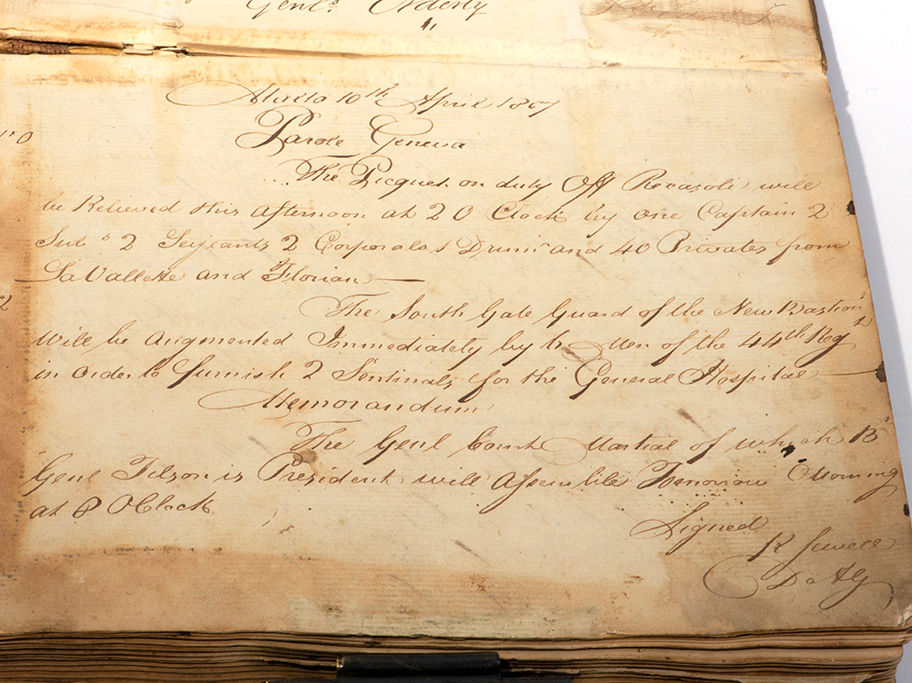 Genl.s Orderly
Malta 10th April 1807
Parole Geneva
The Picquet on duty Off Recasoli will
be Relieved this afternoon at 2 O Clock by one Captain 2
Subs 2 Serjeants 2 Corporals 1 Drumr and 40 Privates from
LaVallette and Florian
The South Gate Guard of the New Bastion
will be Augmented Immediately by 6 Men of the 44th Regt
in order to furnish 2 Sentinals for the General Hospital
Memorandum
The Genl Court Martial of which Br
Genl Tilson is President will Assemble Tomorrow Morning
at 8 OClock
Signed
R Sewell
D A G